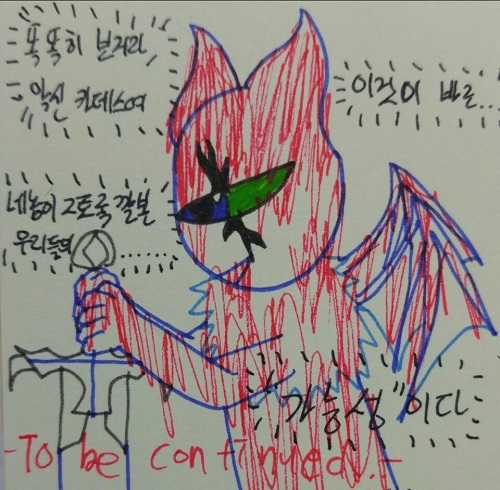 똑똑히 보거라
악신 카데스여
이것이 바로...
네놈이 그토록 깔본
우리들의 ......
"가능성"이다
-To be continued.-